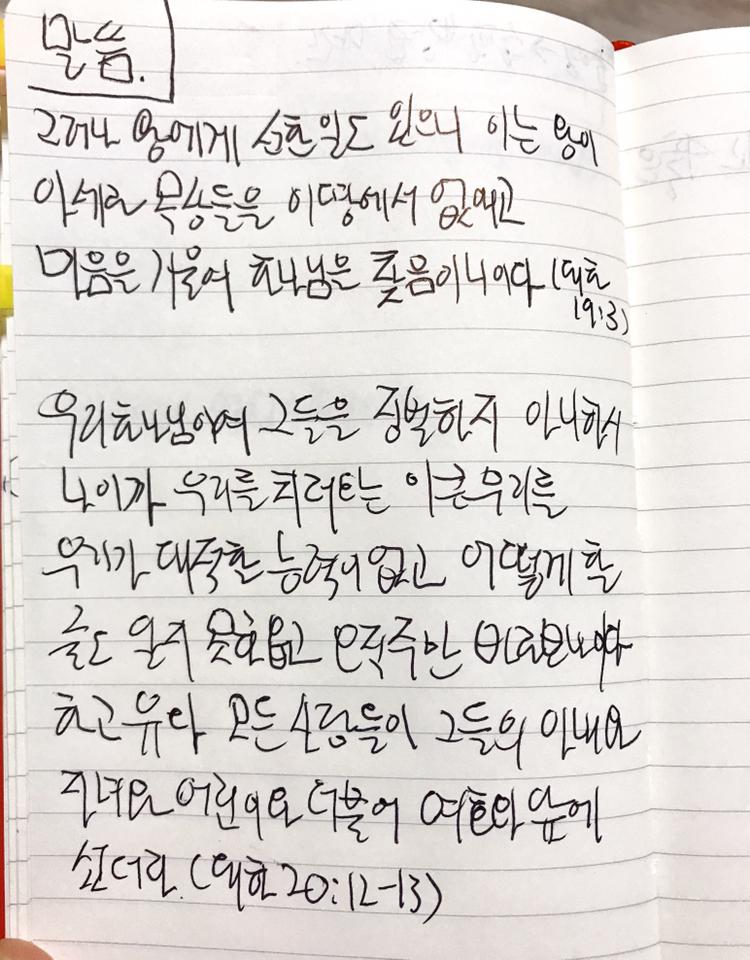 말씀.
그러나 왕에게 선한 일도 있으니 이는 왕이
아세라 목상들을 이 땅에서 없애고
마음을 기울여 하나님을 찾음이니이다 (대하
19:3)
우리 하나님이여 그들을 징벌하지 아니하시
나이까 우리를 치러 오는 이 큰 무리를
우리가 대적할 능력이 없고 어떻게 할
줄도 알지 못하옵고 오직 주만 바라보나이다
하고 유다 모든 사람들이 그들의 아내와
자녀와 어린이와 더불어 여호와 앞에
섰더라. (대하 20:12-13)